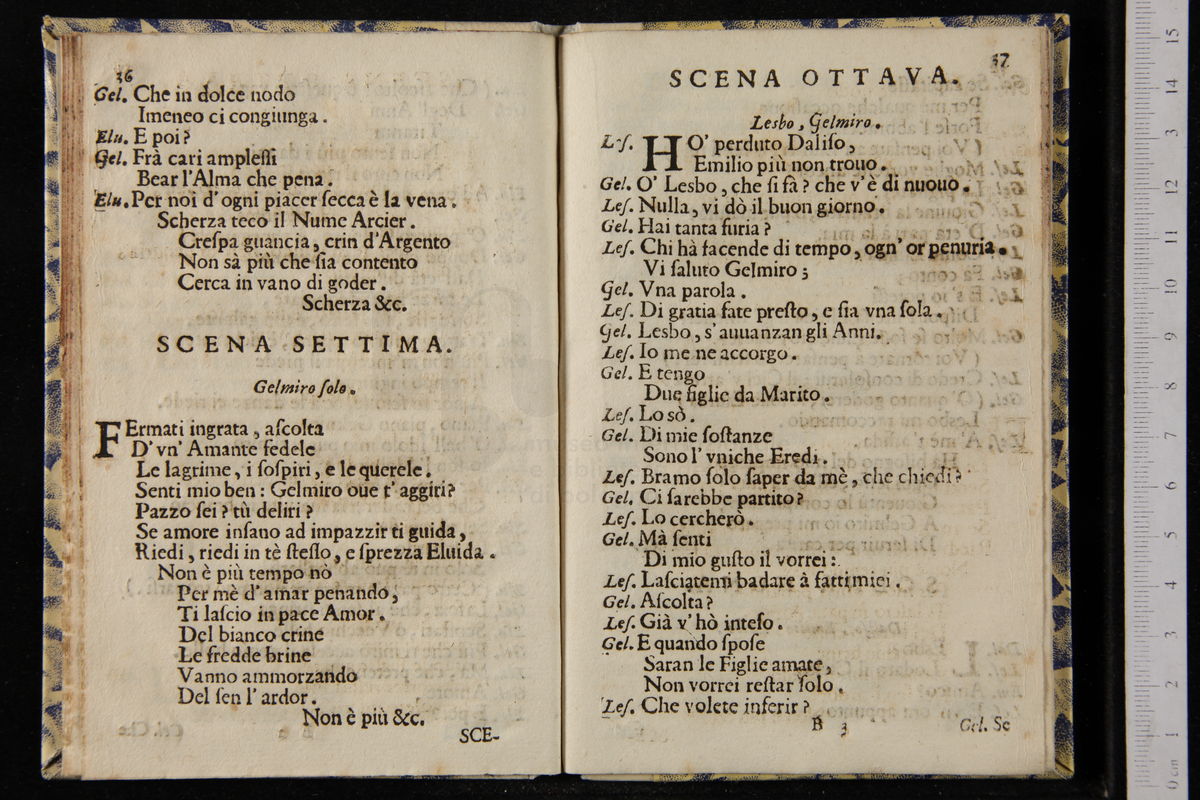 36
Gel. Che in dolce nodo
Imeneo ci congiunga.
Elu. E poi?
Gel. Frà cari ampleſſi
Bear l'Alma che pena.
Elu. Per noi d'ogni piacer ſecca è la vena.
Scherza teco il Nume Arcier.
Creſpa guancia, crin d'Argento
Non sà più che ſia contento
Cerca in vano di goder.
Scherza &c.
SCENA SETTIMA.
Gelmiro ſolo.
FErmati ingrata, aſcolta
D'vn' Amante fedele
Le lagrime, i ſoſpiri, e le querele.
Senti mio ben: Gelmiro oue t'aggiri?
Pazzo ſei? tù deliri?
Se amore inſano ad impazzir ti guida,
Riedi, riedi in tè ſteſſo, e ſprezza Eluida.
Non è più tempo nò
Per mè d'amar penando,
Ti laſcio in pace Amor.
Del bianco crine
Le fredde brine
Vanno ammorzando
Del ſen l'ardor.
Non è più &c.
SCE-
37
SCENA OTTAVA.
Lesbo, Gelmiro.
Leſ. HO' perduto Daliſo,
Emilio più non trouo.
Gel. O' Lesbo, che ſi fà? che v'è di nuouo.
Leſ. Nulla, vi dò il buon giorno.
Gel. Hai tanta furia?
Leſ. Chi hà facende di tempo, ogn'or penuria.
Vi ſaluto Gelmiro;
Gel. Vna parola.
Leſ. Di gratia fate preſto, e ſia vna ſola.
Gel. Lesbo, s'auuanzan gli Anni.
Leſ. Io me ne accorgo.
Gel. E tengo
Due figlie da Marito.
Leſ. Lo sò.
Gel. Di mie ſoſtanze
Sono l'vniche Eredi.
Leſ. Bramo ſolo ſaper da mè, che chiedi?
Gel. Ci ſarebbe partito?
Leſ. Lo cercherò.
Gel. Mà ſenti
Di mio guſto il vorrei:
Leſ. Laſciatemi badare à fatti miei.
Gel. Aſcolta?
Leſ. Già v'hò inteſo.
Gel. E quando ſpoſe
Saran le Figlie amate,
Non vorrei reſtar ſolo.
Leſ. Che volete inferir?
B 3
Gel. Se
15
14
13
12
11
10
9
8
7
6
5
4
3
2
1
0 cm